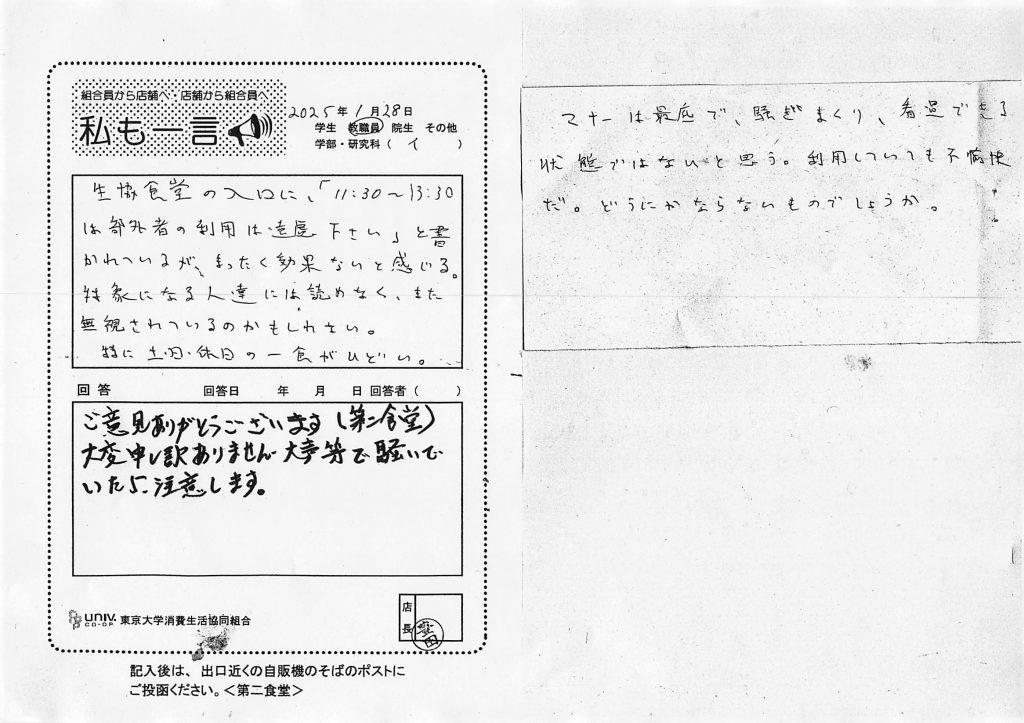 組合員から店舗へ・店舗から組合員へ
私も一言
2025年1月28日
学生 教職員 院生 その他
学部・研究科( )
生協食堂の入口に、「11:30～13:30
は部外者の利用は遠慮下さい」と書
かれているが、まったく効果ないと感じる。
対象になる人達には読めなく、また
無視されているのかもしれない。
特に土・日・休日の一食がひどい。
回答 回答日 年 月 日 回答者( )
ご意見ありがとうございます(第二食堂)
大変申し訳ありません 大声等で騒いで
いたら、注意します。
UNIV.
CO-OP
東京大学消費生活協同組合
店長
豊田
記入後は、出口近くの自販機のそばのポストに
ご投函ください。＜第二食堂＞
マナーは最低で、騒ぎまくり、看過できる
状態ではないと思う。利用していても不愉快
だ。どうにかならないものでしょうか。